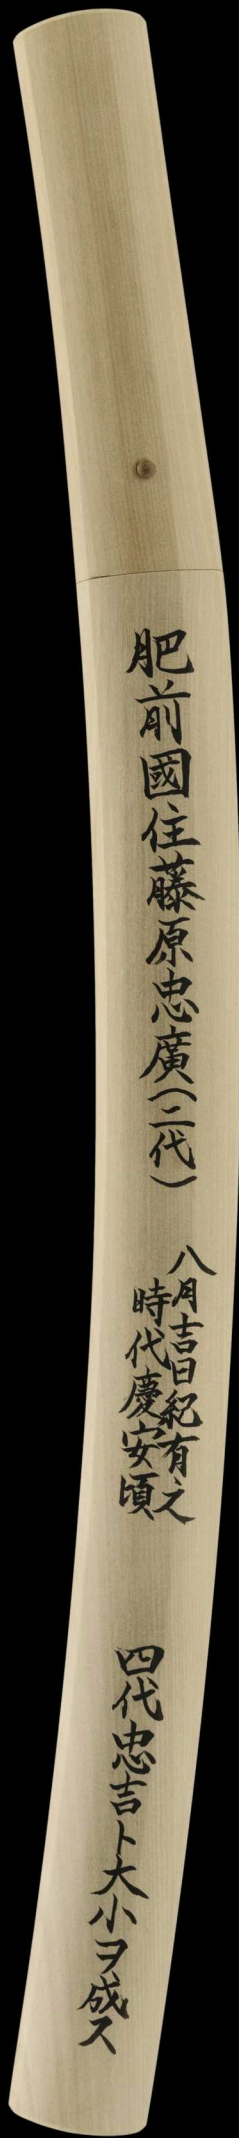 肥前國住藤原忠廣(二代)
八月吉日紀有之
時代慶安頃
四代忠吉ト大小ヲ成ス